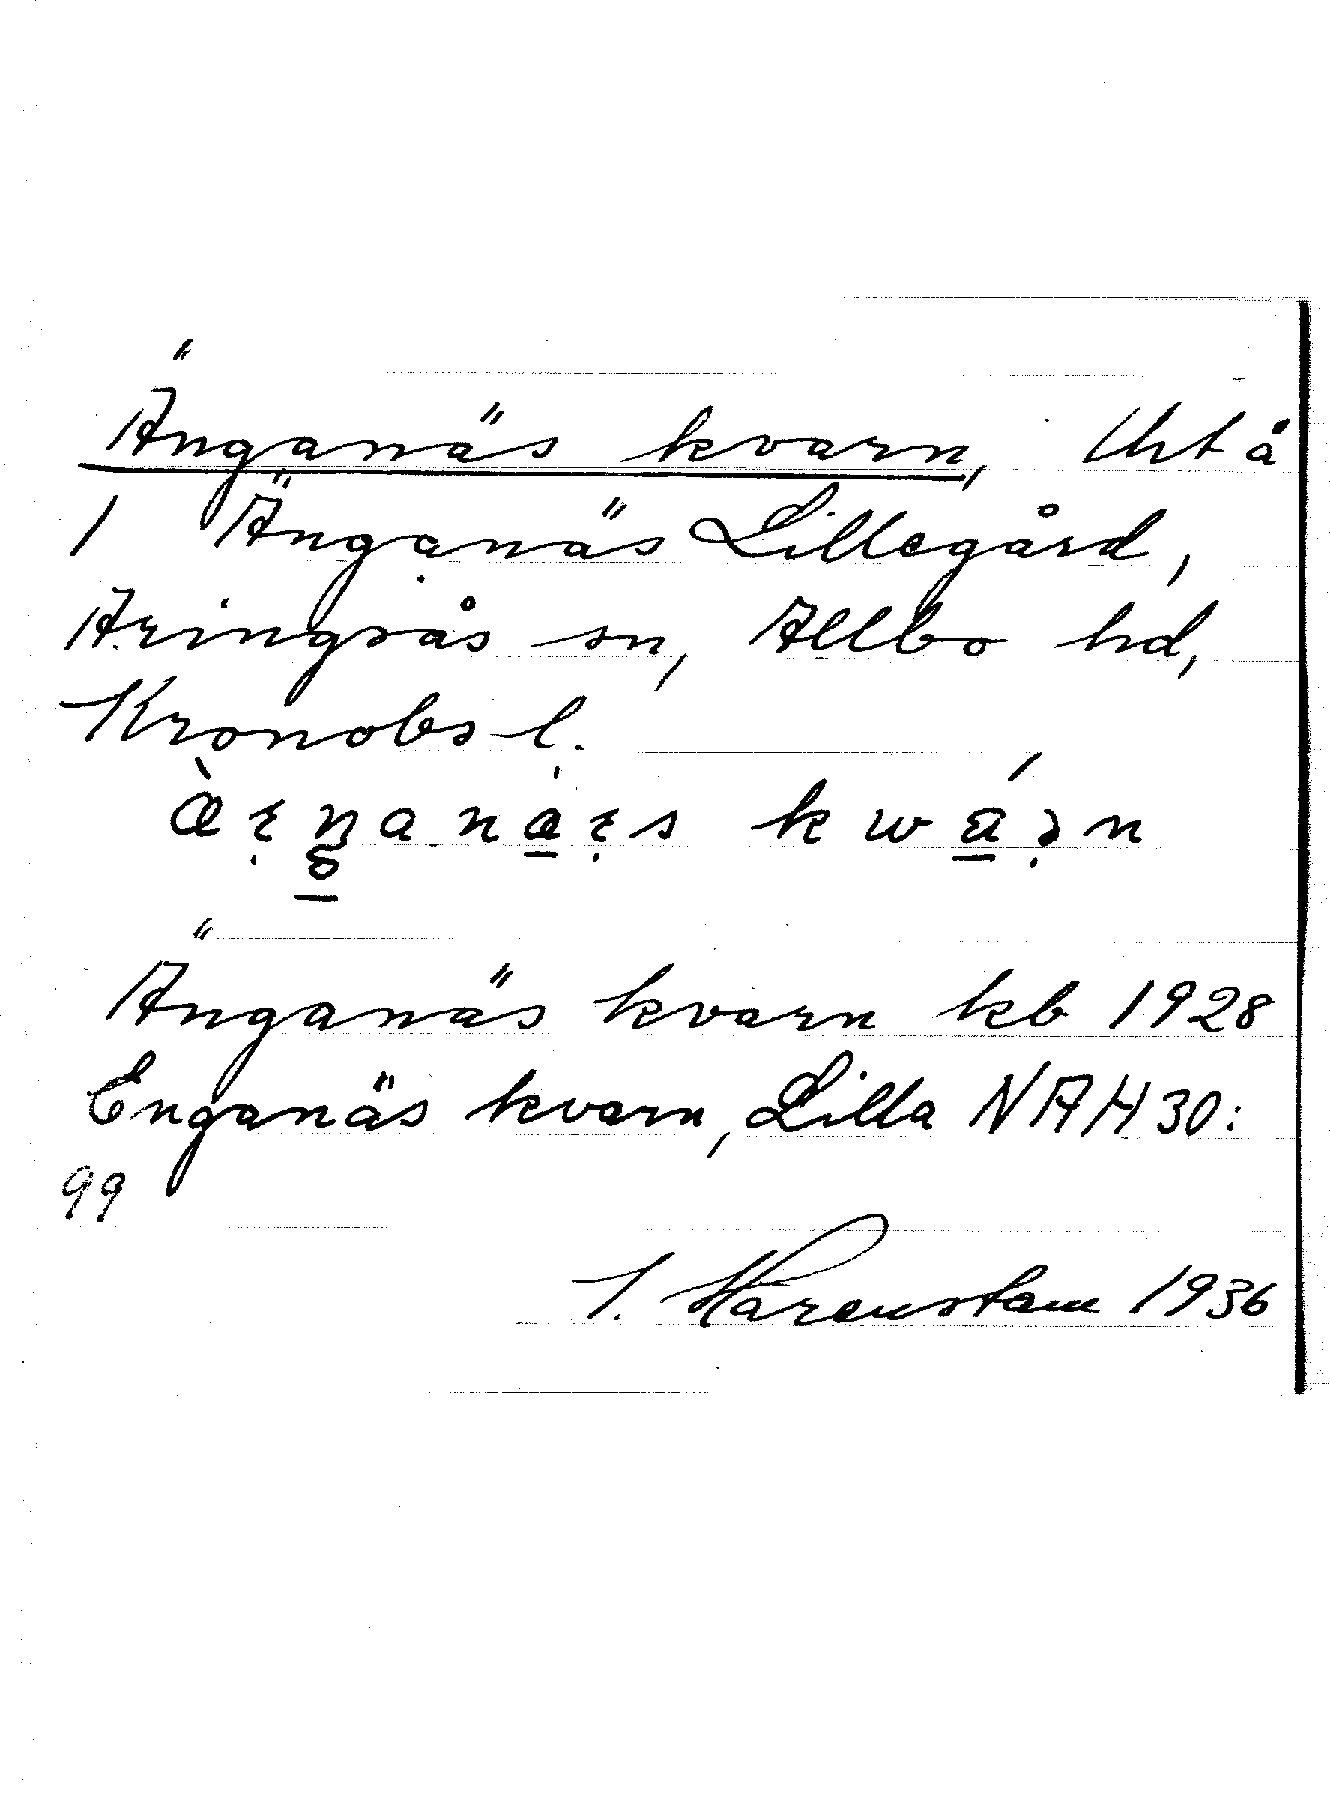 Änganäs kvarn, lht å
1 Änganäs Lillegård,
Aringsås sn, Allbo hd,
Kronobs l.
kwáɹn
Änganäs kvarn kb 1928
Enganäs kvarn, Lilla NAH 30:
99
I. Härenstam 1936